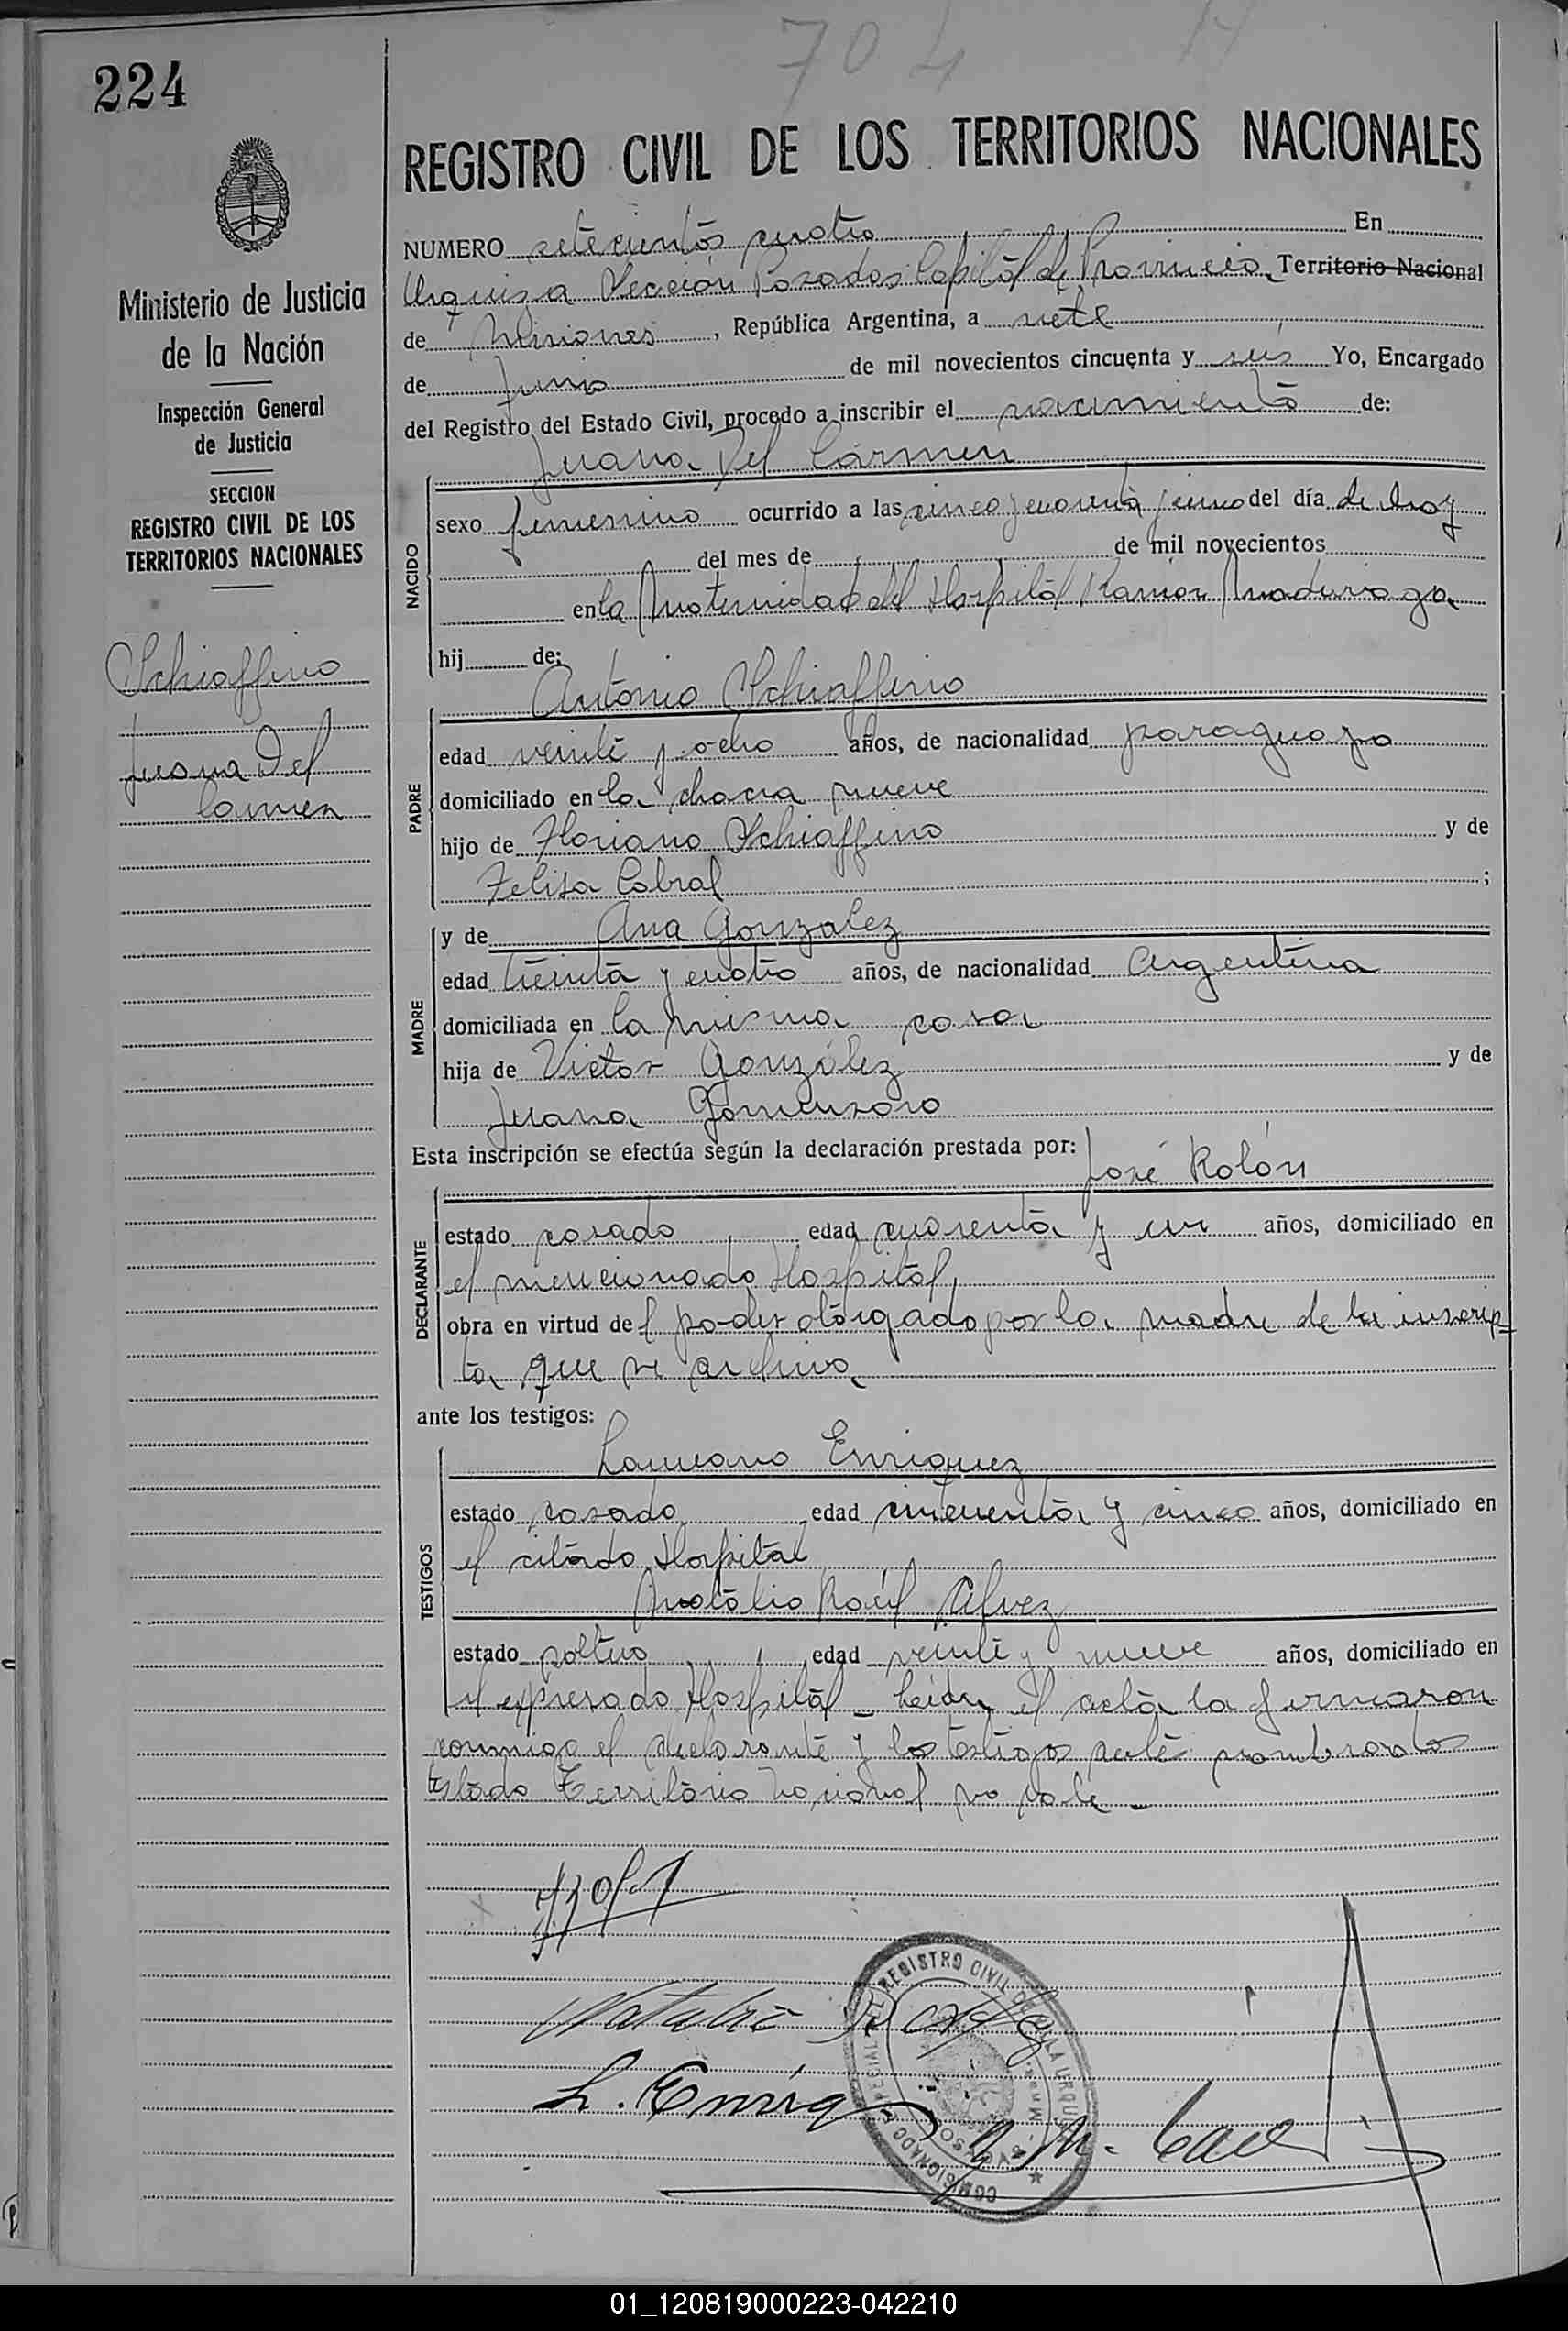 704
224
REGISTRO CIVIL DE LOS TERRITORIOS NACIONALES
Ministerio de Justicia
de la Nación
Inspección General
de Justicia
SECCION
REGISTRO CIVIL DE LOS
TERRITORIOS NACIONALES
Schiaffino
Juana Del
Carmen
NUMERO setecientos cuatro En
Urquiza Sección Posadas Capital de Provincia Territorio Nacional
de Misiones, República Argentina, a siete
de Junio de mil novecientos cincuenta y seis Yo, Encargado
del Registro del Estado Civil, procedo a inscribir el nacimiento de:
Juana Del Carmen
NACIDO
sexo femenino ocurrido a las cinco y cuarenta y cinco del día de hoy
del mes de de mil novecientos
en la Maternidad del Hospital Ramón Madariaga
hij de:
Antonio Schiaffino
PADRE
edad veinte y ocho años, de nacionalidad paraguayo
domiciliado en la chacra nueve
hijo de Floriano Schiaffino y de
Felisa Cabral ;
MADRE
y de Ana Gonzalez
edad treinta y cuatro años, de nacionalidad argentina
domiciliada en la misma casa
hija de Victor González y de
Juana Gomensoro
Esta inscripción se efectúa según la declaración prestada por:
José Rolón
DECLARANTE
estado casado edad cuarenta y un años, domiciliado en
el mencionado Hospital,
obra en virtud del poder otorgado por la madre de la inscrip-
ta que se archiva
ante los testigos:
TESTIGOS
Laureano Enriquez
estado casado edad cincuenta y cinco años, domiciliado en
el citado Hospital
Natalio Raúl Alvez
estado soltero edad veinte y nueve años, domiciliado en
el expresado Hospital - Leida el acta la firmaron
conmigo el declarante y los testigos ante nombrados
testado Territorio Nacional no vale -
Natalio R Alvez
L. Enriq
REGISTRO CIVIL DE VILLA URQUIZA
COMISIONADO ESPECIAL
POSADAS - Mnes.
01_120819000223-042210